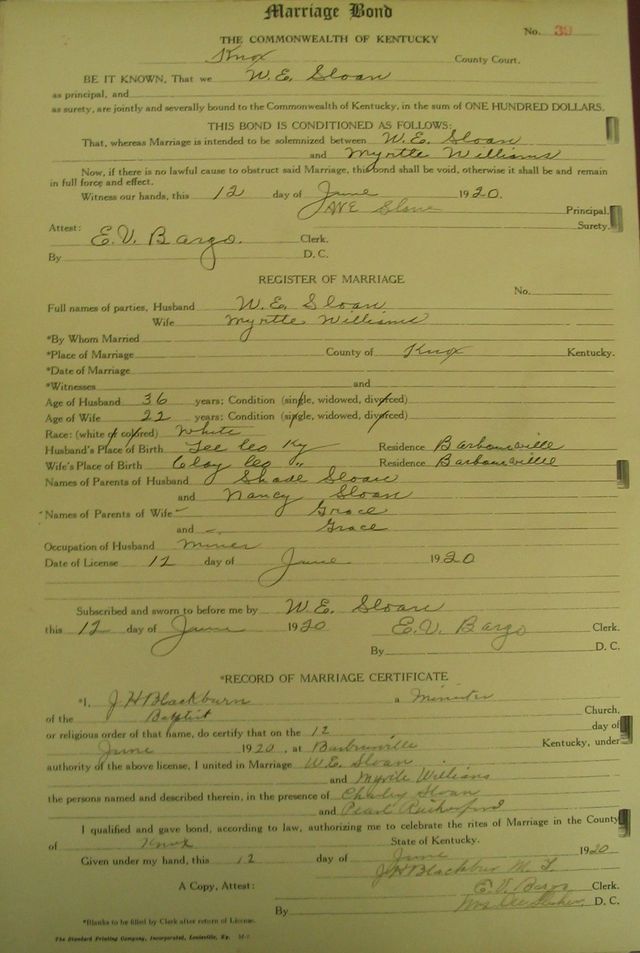 Marriage Bond
No. 39
THE COMMONWEALTH OF KENTUCKY
Knox County Court.
BE IT KNOWN, That we W. E. Sloan
as principal, and
as surety, are jointly and severally bound to the Commonwealth of Kentucky, in the sum of ONE HUNDRED DOLLARS.
THIS BOND IS CONDITIONED AS FOLLOWS:
That, whereas Marriage is intended to be solemnized between W. E. Sloan
and Myrtle Williams
Now, if there is no lawful cause to obstruct said Marriage, this bond shall be void, otherwise it shall be and remain
in full force and effect.
Witness our hands, this 12 day of June 1920.
Principal.
Surety.
Attest: E. V. Bargo. Clerk.
By D. C.
REGISTER OF MARRIAGE
No.
Full names of parties, Husband W. E. Sloan
Wife Myrtle Williams
*By Whom Married
*Place of Marriage County of Knox Kentucky.
*Date of Marriage
*Witnesses and
Age of Husband 36 years; Condition (single, widowed, divorced)
Age of Wife 22 years; Condition (single, widowed, divorced)
Race: (white or colored) White
Husband's Place of Birth Lee Co Ky Residence Barbourville
Wife's Place of Birth Clay Co " Residence Barbourville
Names of Parents of Husband Shade Sloan
and Nancy Sloan
Names of Parents of Wife Grace
and Grace
Occupation of Husband Miner
Date of License 12 day of June 1920
Subscribed and sworn to before me by W. E. Sloan
this 12 day of June 1920 E. V. Bargo Clerk.
By D. C.
*RECORD OF MARRIAGE CERTIFICATE
*I, J H Blackburn a Minister
of the Baptist Church,
or religious order of that name, do certify that on the 12 day of
June 1920, at Barbourville Kentucky, under
authority of the above license, I united in Marriage W. E. Sloan
and Myrtle Williams
the persons named and described therein, in the presence of Charley Sloan
and Pearl Rutherford
I qualified and gave bond, according to law, authorizing me to celebrate the rites of Marriage in the County
of Knox State of Kentucky.
Given under my hand, this 12 day of June 1920
J H Blackburn M. G.
A Copy, Attest: E. V. Bargo Clerk.
By Mrs D. C.
*Blanks to be filled by Clerk after return of License.
The Standard Printing Company, Incorporated, Louisville, Ky.